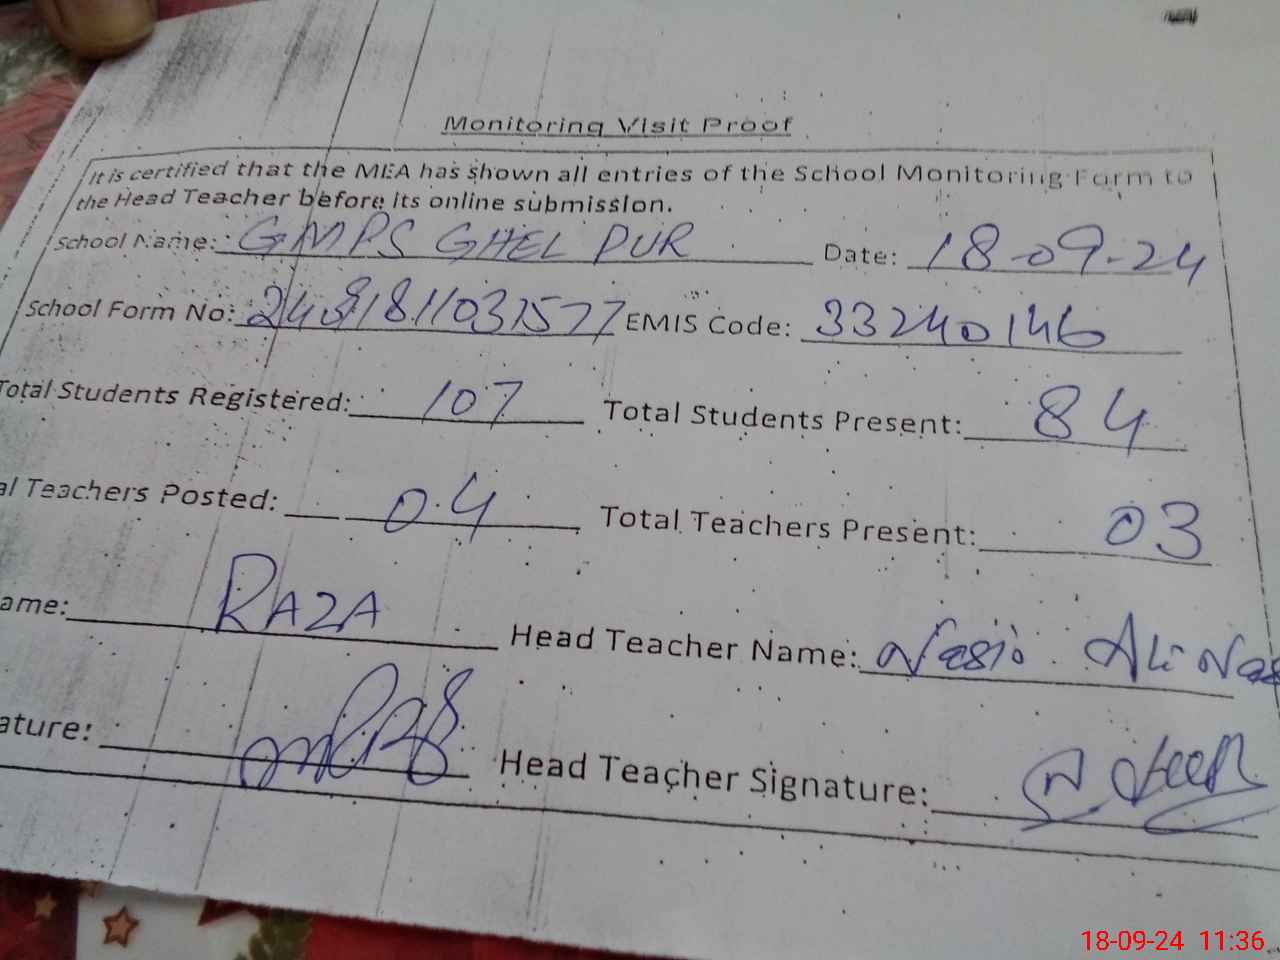 Monitoring Visit Proof
It is certified that the MEA has shown all entries of the School Monitoring Form to
the Head Teacher before its online submission.
School Name: GMPS GHEL PUR Date: 18-09-24
School Form No: EMIS Code: 33240146
Total Students Registered: 107 Total Students Present: 84
al Teachers Posted: 04 Total Teachers Present: 03
ame: RAZA Head Teacher Name: Ali
ature: Head Teacher Signature:
18-09-24 11:36